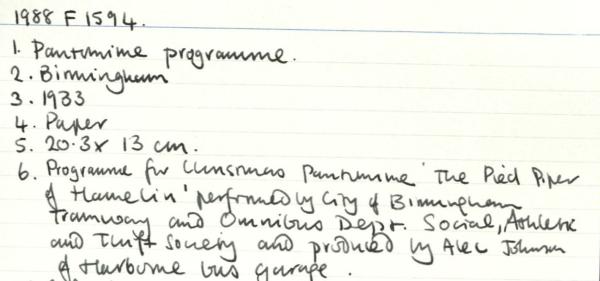 1988 F 1594.
1. Pantomime programme.
2. Birmingham
3. 1933
4. Paper
5. 20.3 x 13 cm.
6. Programme for Christmas Pantomime 'The Pied Piper
of Hamelin' performed by City of Birmingham
Tramway and Omnibus Dept. Social, Athletic
and Thrift Society and produced by Alec Johnson
of Harborne bus garage.